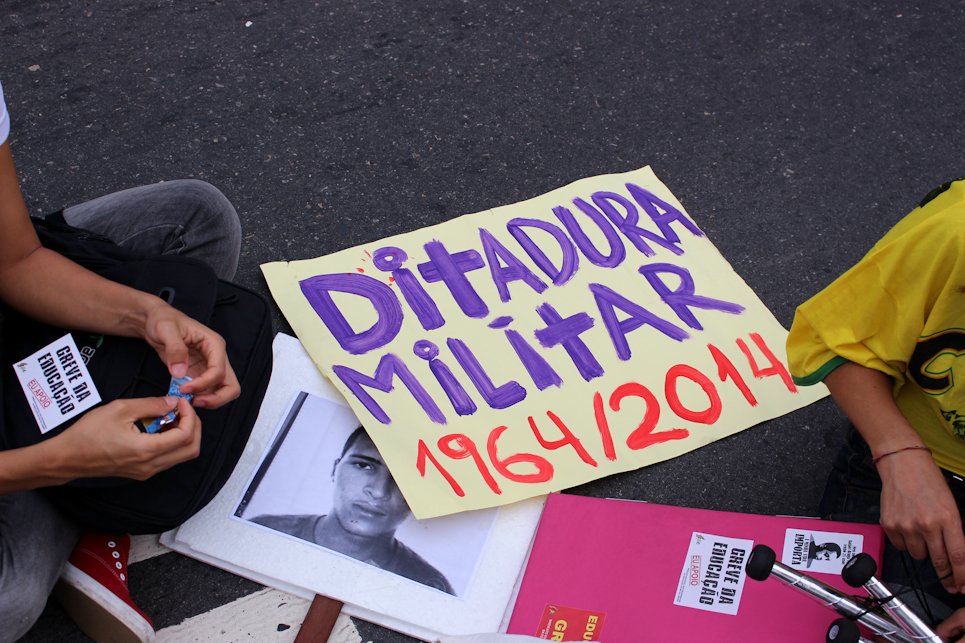 DITADURA
MILITAR
1964/2014
GREVE DA
EDUCAÇÃO
EU APOIO
GREVE DA
EDUCAÇÃO
EU APOIO
IMPORTA
EDU
GR